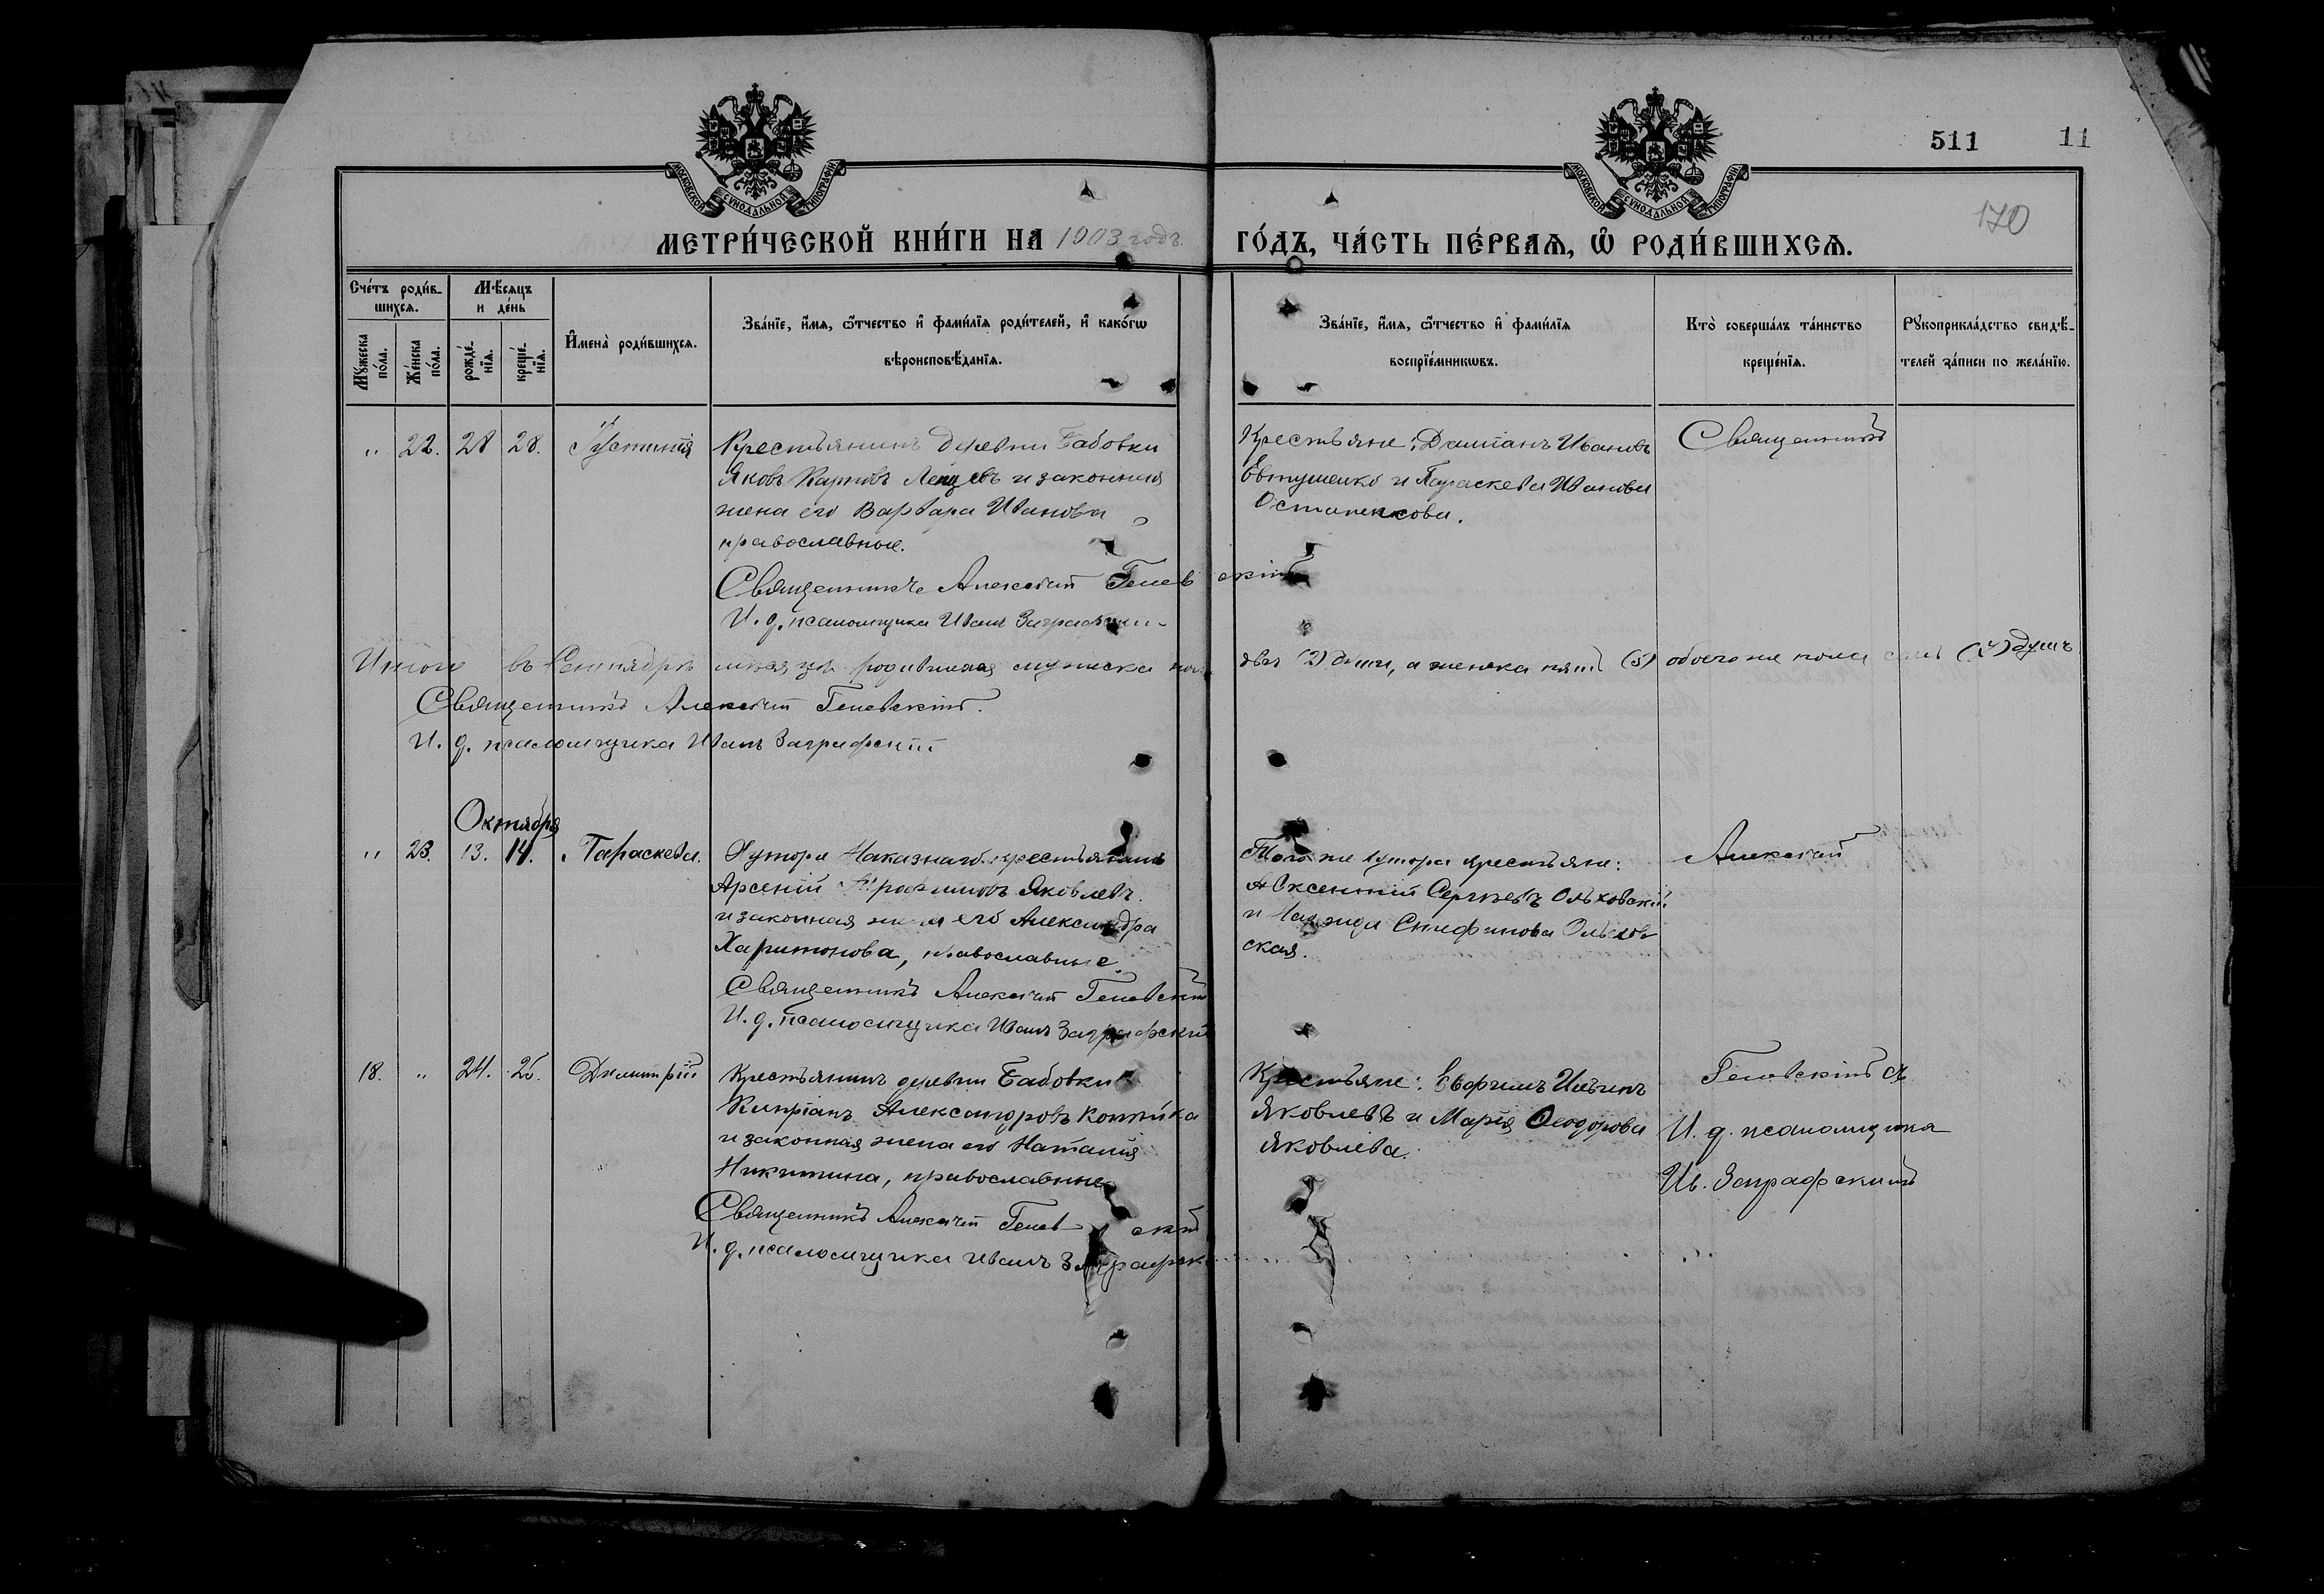 511 11
170
МОСКОВСКОЙ СУНОДАЛЬНОЙ ТИПОГРАФІИ
МОСКОВСКОЙ СУНОДАЛЬНОЙ ТИПОГРАФІИ
МЕТРИ́ЧЕСКОЙ КНИ́ГИ НА 1903 годъ. ГО́ДЪ, ЧА́СТЬ ПЕ́РВАѦ, Ѡ РОДИ́ВШИХСѦ.
Сче́тъ роди́в-
шихсѧ.
Мѣ́сѧцъ
и де́нь
Мꙋ́жеска по́ла.
Же́нска по́ла.
рожде́-нїѧ.
креще́-нїѧ.
И҆мена̀ роди́вшихсѧ.
Зва́нїе, и҆́мѧ, ѻ҆́тчество и҆ фами́лїѧ роди́телей, и҆ како́гѡ
вѣроисповѣ́данїѧ.
Зва́нїе, и҆́мѧ, ѻ҆́тчество и҆ фами́лїѧ
воспрїе́мникѡвъ.
Кто̀ соверша́лъ та́инство
креще́нїѧ.
Рꙋкоприкла́дство свидѣ́-
телей за́писи по жела́нїю.
" 22. 28 28. Іустинія
Крестьянинъ деревни Бабовки
Яковъ Карповъ и законная
жена его Варвара Иванова
православные.
Священникъ Алексій Геневскій
И. д. псаломщика Иванъ Заграфскій
Крестьяне: Даміанъ Ивановъ
Евтушенко и Параскева Иванова
Остапенкова.
Священникъ
Итого въ Сентябрѣ мѣсяцѣ родившихся мужеска пола два (2) души, а женска пять (5) обоего же пола семь (7) душъ
Священникъ Алексій Геневскій.
И. д. псаломщика Иванъ Заграфскій
Октября
" 23. 13. 14. Параскева.
Хутора Наказнаго крестьянинъ
Арсеній Трофимовъ Яковлевъ
и законная жена его Александра
Харитонова, православные.
Священникъ Алексій Геневскій
И. д. псаломщика Иванъ Заграфскій
Того же хутора крестьяне:
Авксентій Сергѣевъ Ольховскій
и Ольхов
ская.
Алексій
18. " 24. 25. Димитрій
Крестьянинъ деревни Бабовки
Кипріанъ Александровъ
и законная жена его Наталія
Никитина, православные
Священникъ Алексій Геневскій
И. д. псаломщика Иванъ Заграфск
Крестьяне: Евфимъ Ильинъ
Яковлевъ и Марія Ѳеодорова
Яковлева.
Геневскій съ
И. д. псаломщика
Ив. Заграфскимъ